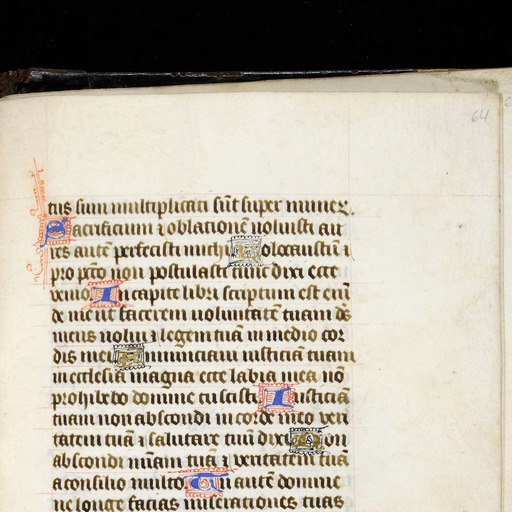 64
tus sum multiplicati sūt super numeꝝ.
Sacrificium ⁊ oblationē noluisti aur
res autē perfecisti michi Holocaustū ⁊
pro pc̄co non postulasti tunc dixi ecce
venio In capite libri scriptum est eni
de me ut facerem uoluntatē tuam ds̄
meus uolui ⁊ legem tuā in medio cor
dis mei Annunciaui iusticiā tuam
in ecclesia magna ecce labia mea nō
prohibebo domine tu scisti Iusticiā
tuam non abscondi in corde meo veri
tatem tuā ⁊ salutare tuū dixi Non
abscondi mīam tuā ⁊ veritatem tuā
a consilio multo Tu autē domine
ne longe facias miserationes tuas